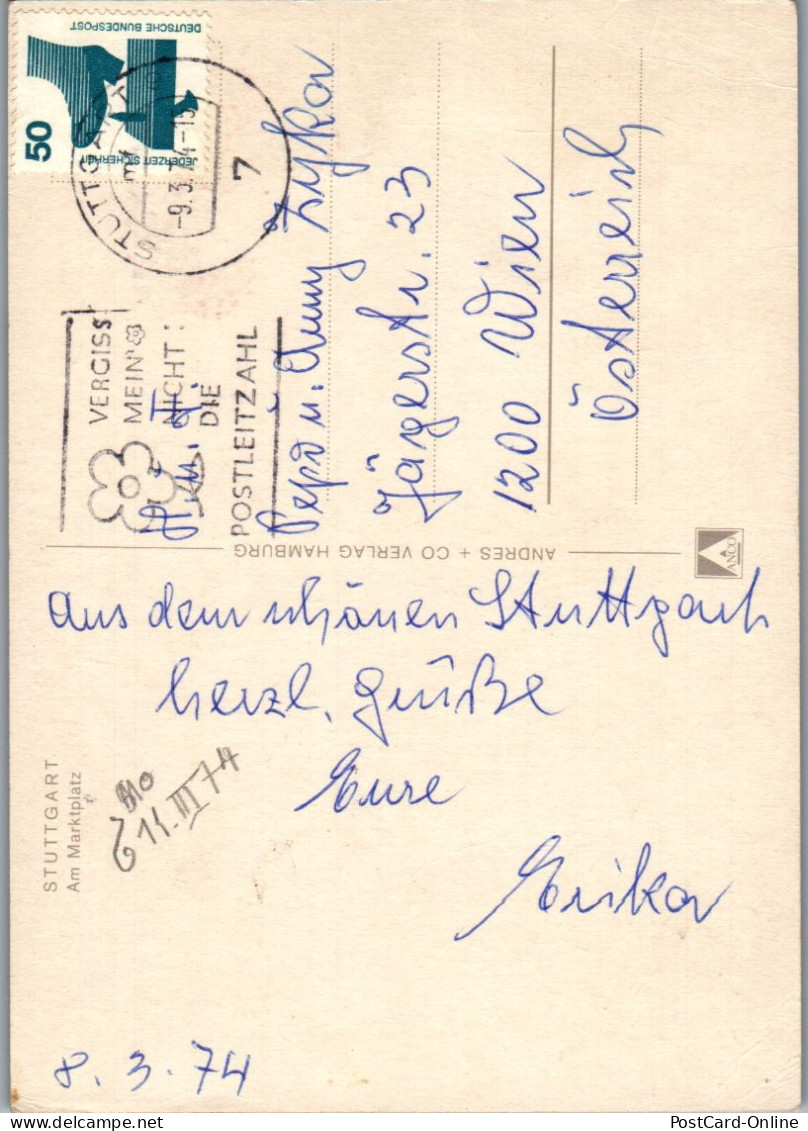 STUTTGART
Am Marktplatz
8. 3. 74
Aus dem schönen Stuttgart
herzl. Grüße
Eure
Erika
Mo
11. III 74
ANDRES + CO VERLAG HAMBURG
ANCO
50
JEDERZEIT SICHERHEIT
DEUTSCHE BUNDESPOST
STUTTGART
-9.3.74-15
7
VERGISS
MEIN
NICHT:
DIE
POSTLEITZAHL
Pepo u. Anny Zyka
Jägerstr. 23
1200 Wien
Österreich
PostCard-Online